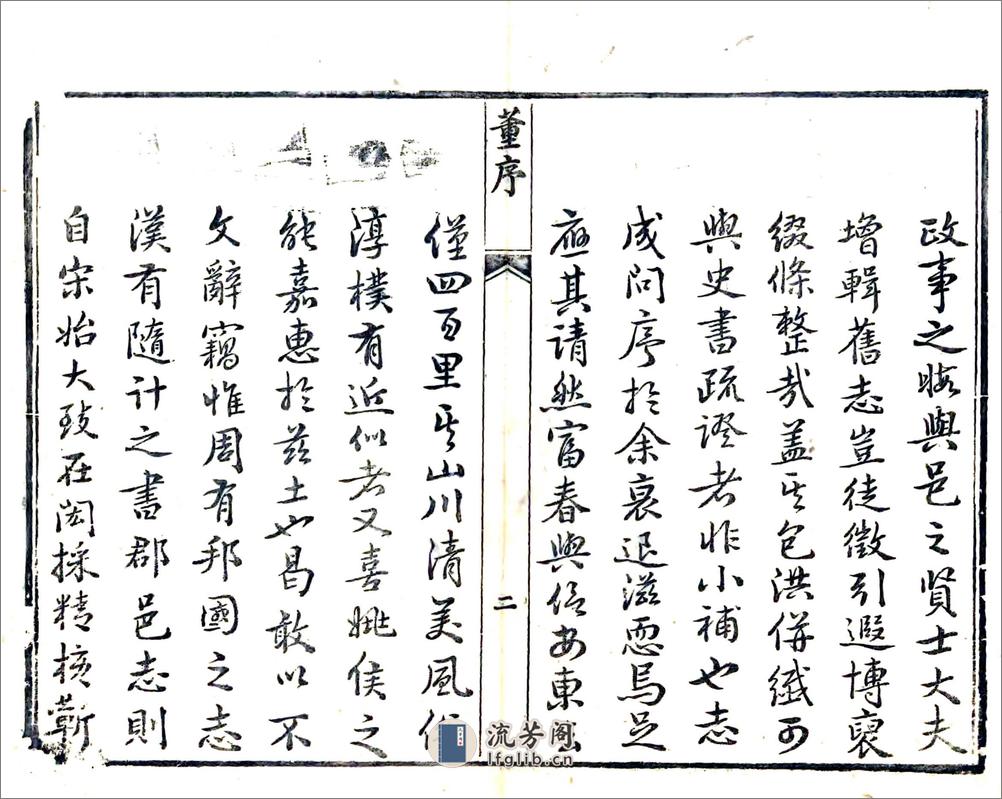 政事之暇與邑之賢士大夫
增輯舊志豈徒徵引遐博裒
綴條整哉盖其包洪併纖可
與史書疏證者非小補也志
成問序於余衰退滋恧烏足
應其請然富春與信安東
董序
二
僅四百里其山川清美風俗
淳樸有近似者又喜姚侯之
能嘉惠於兹土也曷敢以不
文辭竊惟周有邦國之志
漢有隨計之書郡邑志則
自宋始大致在閎採精核蘄
流芳阁
lfglib.cn